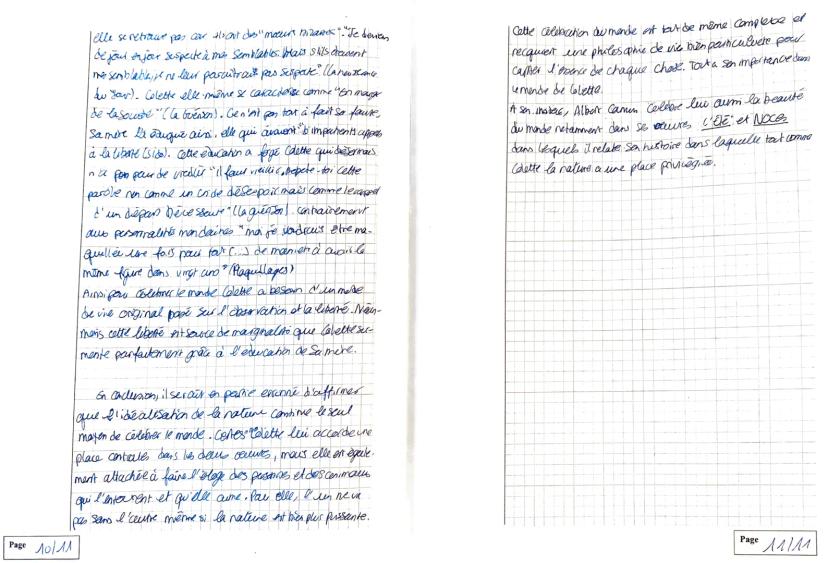 elle se retrouve pas car ils ont des "mœurs bizarres". "Je deviens
de jour en jour suspecte à mes semblables. Mais s'ils étaient
mes semblables, je ne leur paraîtrais pas suspecte" (La naissance
du jour). Colette elle même se caractérise comme "En marge
de la société" (La guérison). Ce n'est pas tout à fait sa faute,
sa mère la éduqué ainsi. elle qui à la liberté (Sido). Cette éducation a forgé Colette qui désormais
n'a pas peur de vieillir "il faut vieillir, répète-toi cette
parole non comme un cri de désespoir mais comme le rappel
d'un départ nécessaire" (La guérison). contrairement
aux personnalités mondaines "moi je voudrais être ma-
quillée une fois pour tout (...) de manière à avoir la
même figure dans vingt ans" (Maquillages)
Ainsi pour célébrer le monde Colette a besoin d'un mode
de vie original basé sur l'observation et la liberté. Néan-
moins cette liberté est source de marginalité que Colette sur-
monte parfaitement grâce à l'éducation de sa mère.
En conclusion, il serait en partie erroné d'affirmer
que l'idéalisation de la nature continue le seul
moyen de célébrer le monde. Certes Colette lui accorde une
place centrale dans les deux œuvres, mais elle est égale-
ment attachée à faire l'éloge des personnes et des animaux
qui l'entourent et qu'elle aime. Pour elle, l'un ne va
pas sans l'autre même si la nature est bien plus puissante.
Page 10/11
Cette célébration du monde est tout de même complexe et
requiert une philosophie de vie bien particulière pour
capter l'essence de chaque chose. Tout a son importance dans
le monde de Colette.
A son instar, Albert Camus célèbre lui aussi la beauté
du monde notamment dans ses œuvres L'ÉTÉ et NOCES
dans lesquels il relate son histoire dans laquelle tout comme
Colette la nature a une place privilégiée.
Page 11/11